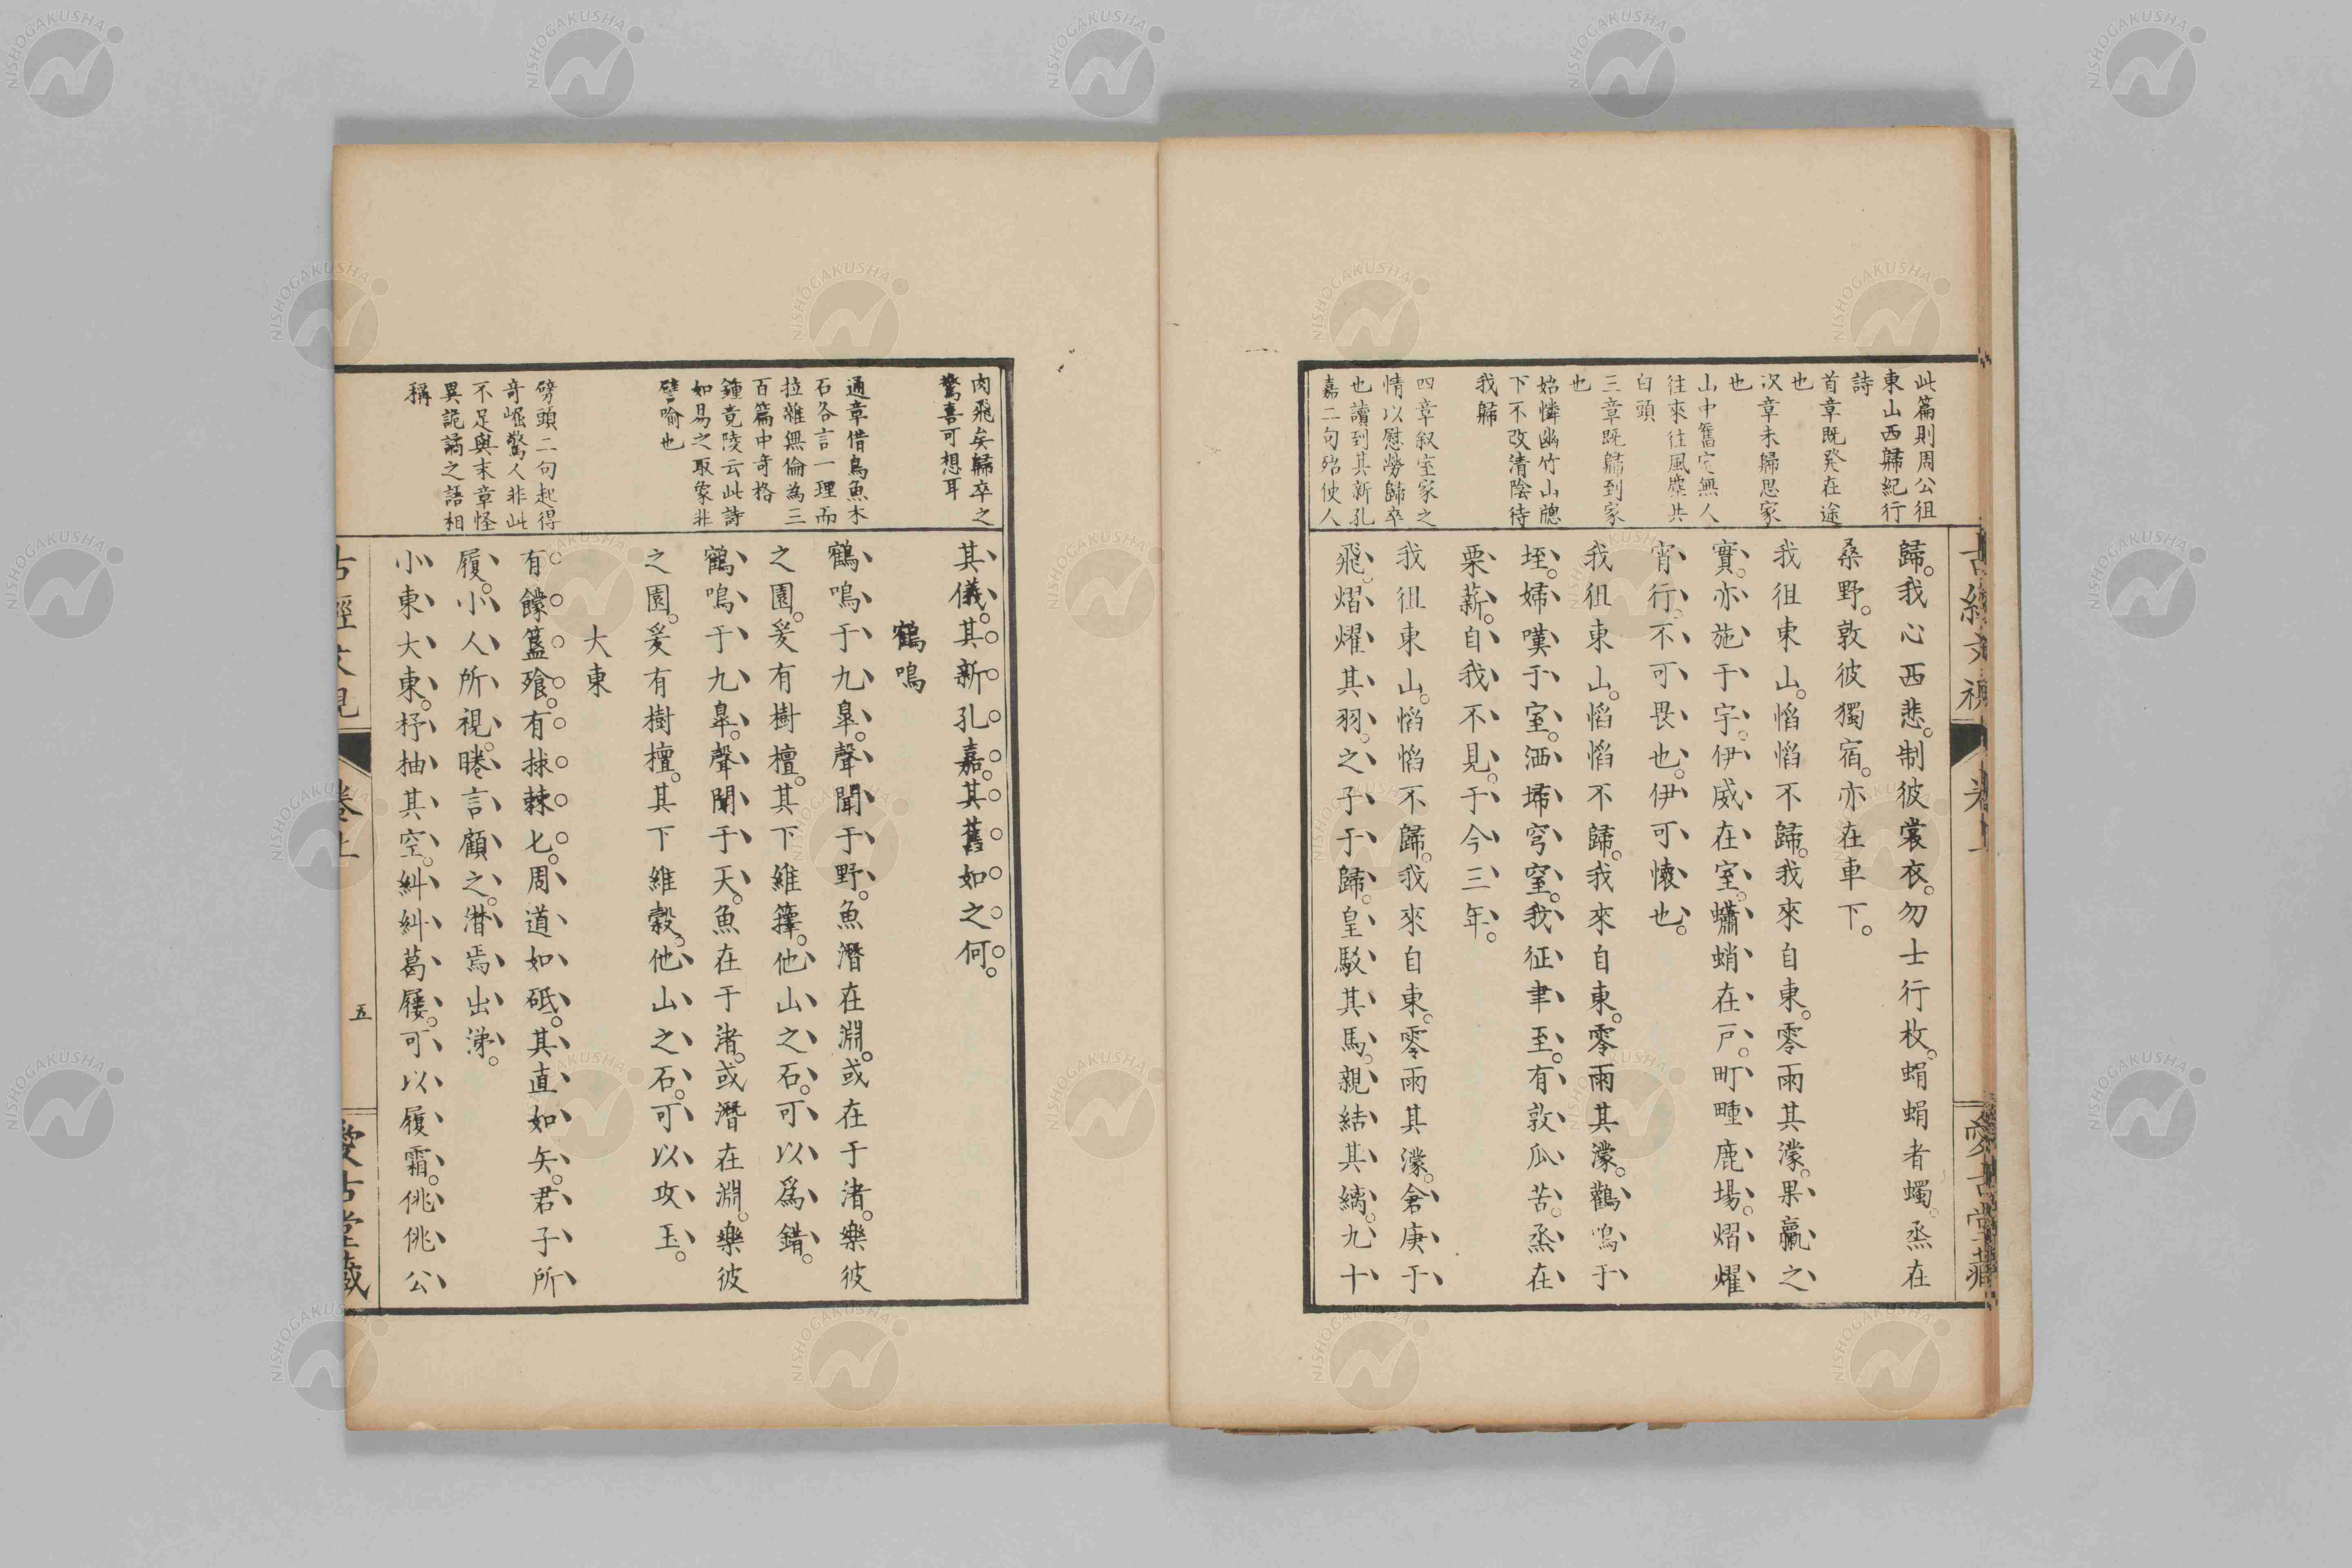 此篇則周公徂
東山西歸紀行
詩
首章既發在途
也
次章未歸思家
也
山中舊宅無人
往來往風塵共
白頭
三章既歸到家
也
始憐幽竹山牕
下不改清陰待
我歸
四章叙室家之
情以慰勞歸卒
也讀到其新孔
嘉二句殆使人
歸。我心西悲。制彼裳衣。勿士行枚。蜎蜎者蠋。烝在
桑野。敦彼獨宿。亦在車下。
我徂東山。慆慆不歸。我來自東。零雨其濛。果臝之
實。亦施于宇。伊威在室。蠨蛸在戶。町畽鹿場。熠燿
宵行。不可畏也。伊可懷也。
我徂東山。慆慆不歸。我來自東。零雨其濛。鸛鳴于
垤。婦嘆于室。洒埽穹窒。我征聿至。有敦瓜苦。烝在
栗薪。自我不見。于今三年。
我徂東山。慆慆不歸。我來自東。零雨其濛。倉庚于
飛。熠燿其羽。之子于歸。皇駁其馬。親結其縭。九十
肉飛矣歸卒之
驚喜可想耳
通章借鳥魚木
石各言一理而
拉雜無倫為三
百篇中奇格
鍾竟陵云此詩
如易之取象非
譬喻也
劈頭二句起得
奇崛驚人非此
不足與末章怪
異詭譎之語相
稱
其儀。其新孔嘉。其舊如之何。
鶴鳴
鶴鳴于九臯。聲聞于野。魚潛在淵。或在于渚。樂彼
之園。爰有樹檀。其下維蘀。他山之石。可以爲錯。
鶴鳴于九臯。聲聞于天。魚在于渚。或潛在淵。樂彼
之園。爰有樹檀。其下維榖。他山之石。可以攻玉。
大東
有饛簋飱。有捄棘匕。周道如砥。其直如矢。君子所
履。小人所視。睠言顧之。潸焉出涕。
小東大東。杼抽其空。糾糾葛屨。可以履霜。佻佻公
卷上
五
愛古堂藏
NISHOGAKUSHA